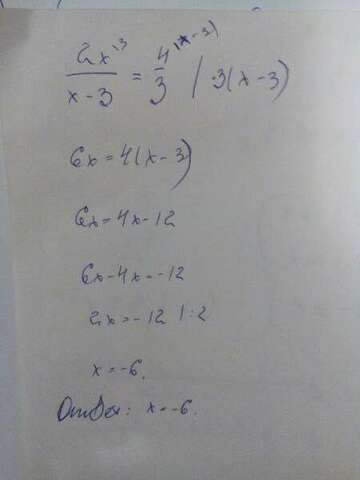 2x·3 / x-3 = 4·(x-3) / 3 | ·3(x-3)
6x=4(x-3)
6x=4x-12
6x-4x=-12
2x=-12 |:2
x=-6.
Ответ: x=-6.